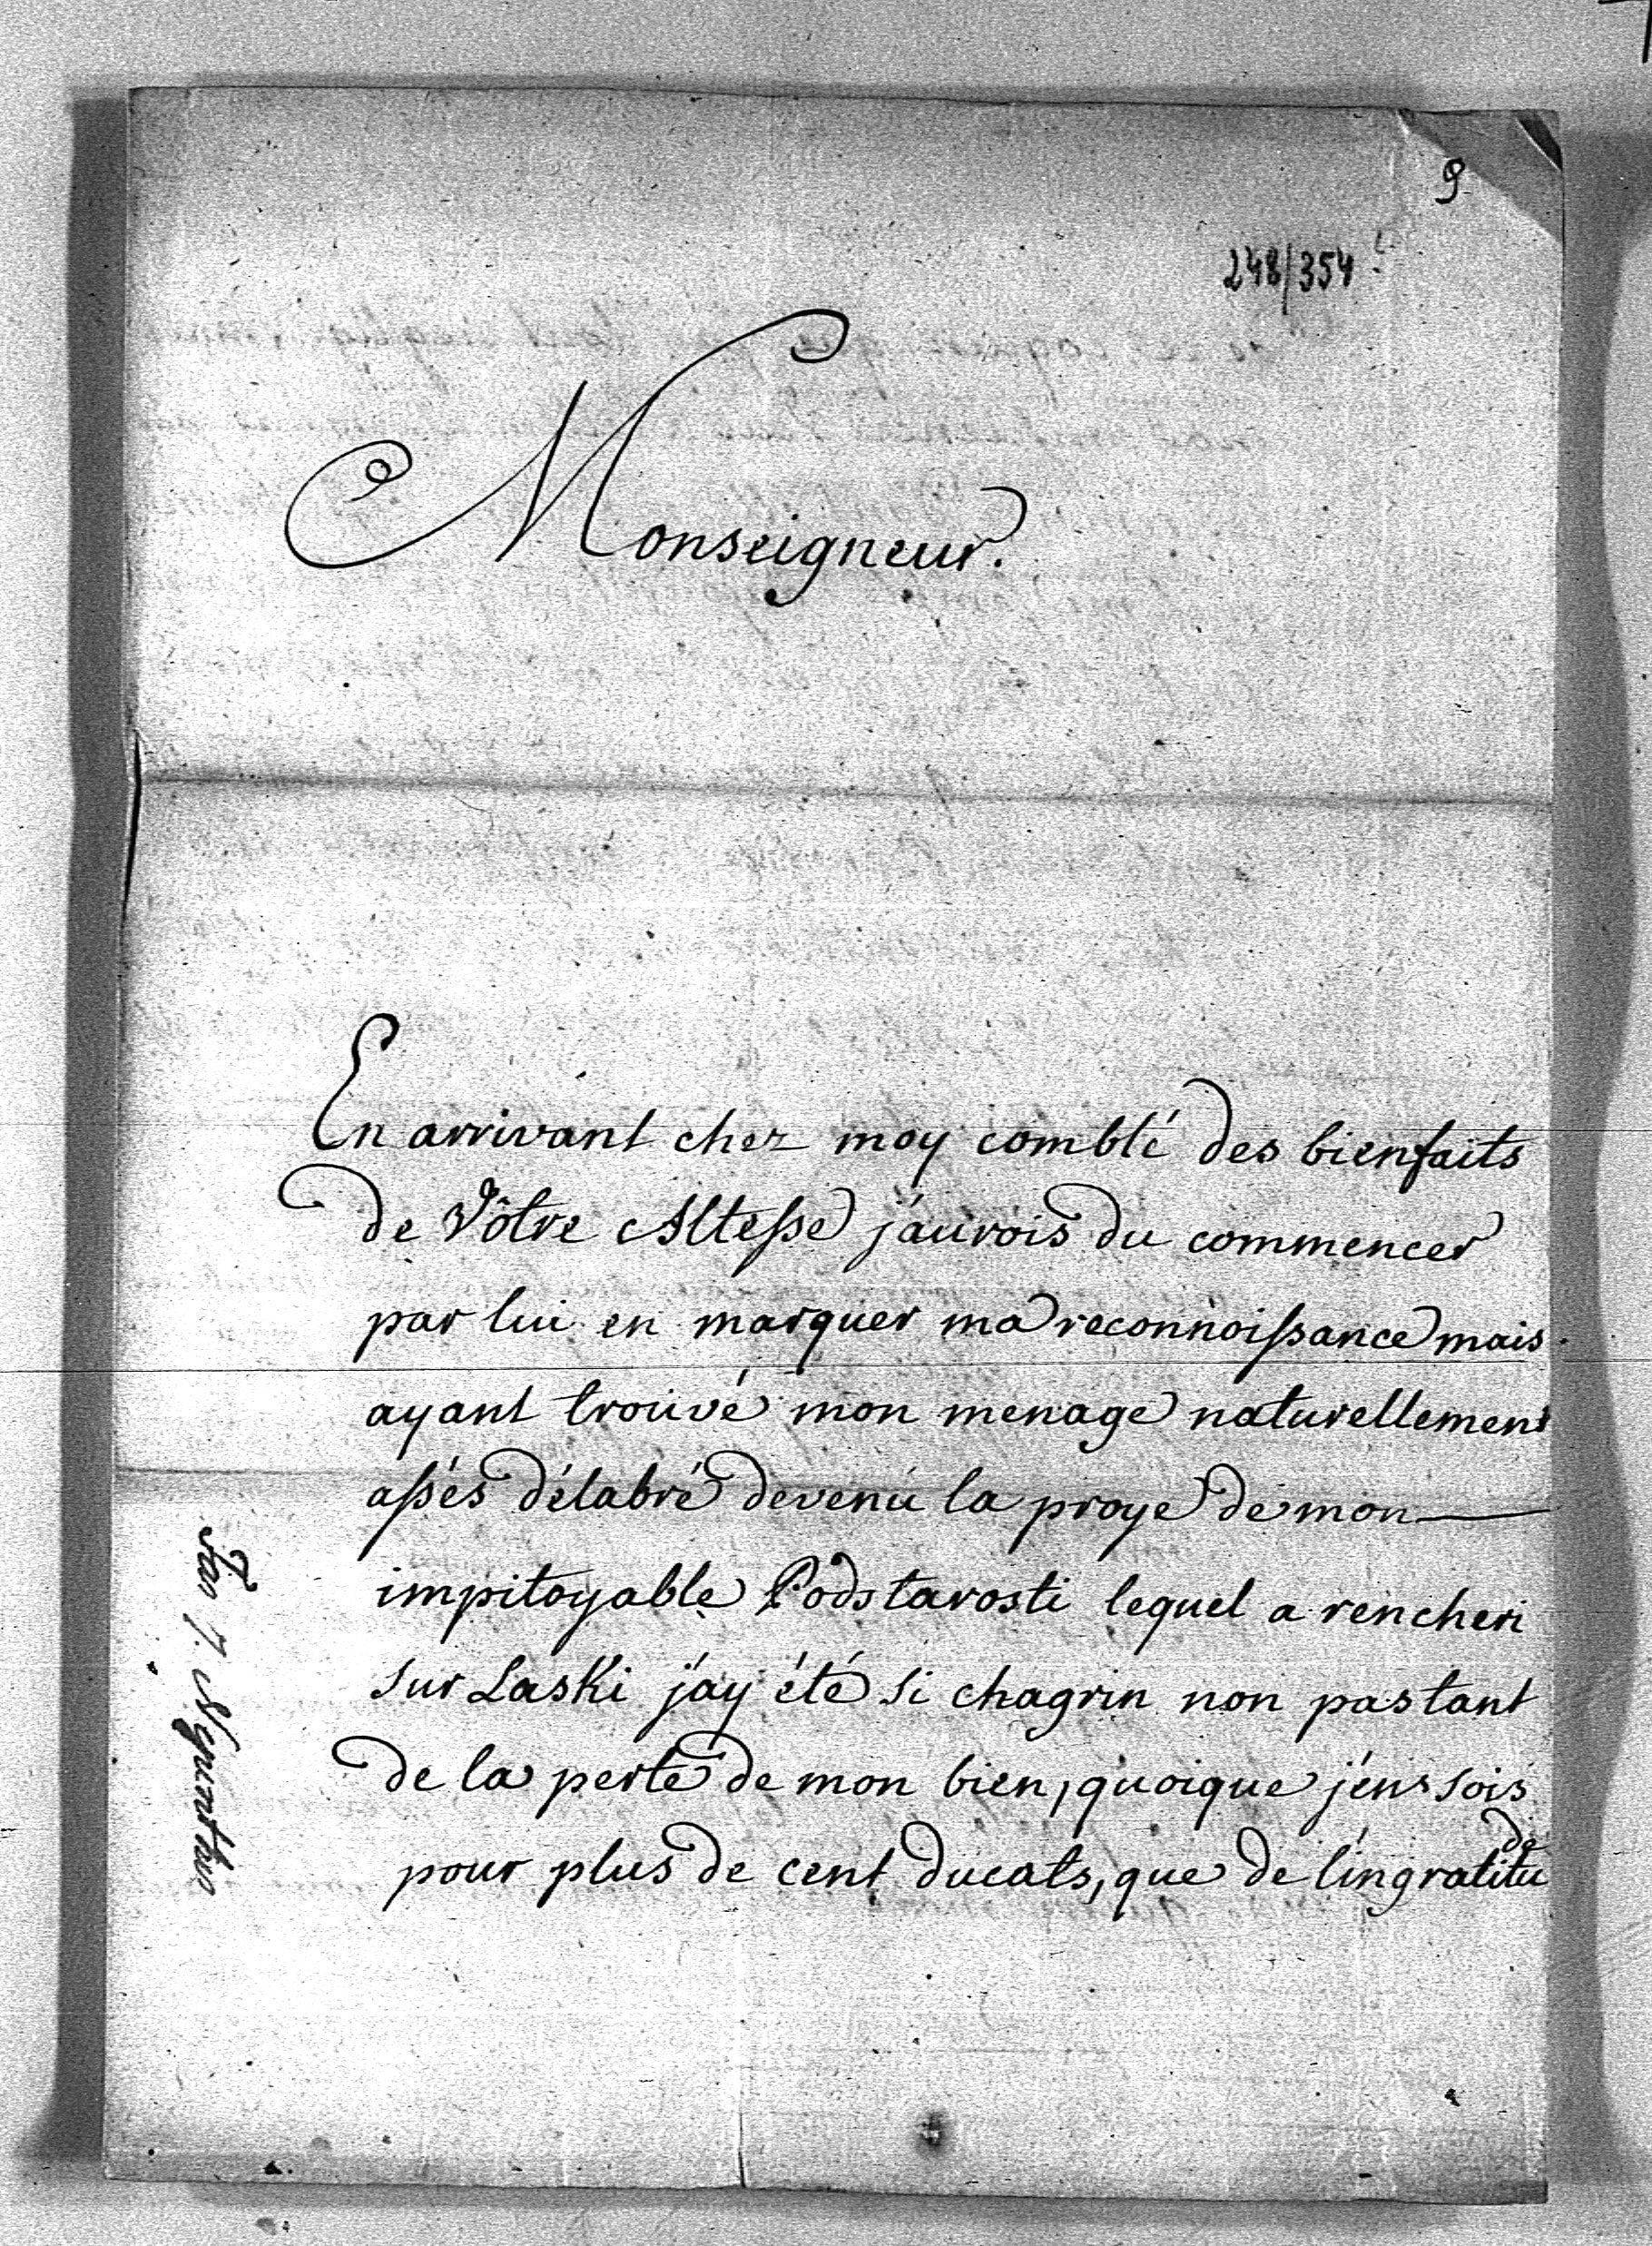 9
248/354
Monseigneur.
En arrivant chez moy comblé des bienfaits
de Vôtre Altesse j'aurois du commencer
par lui en marquer ma reconnoissance mais
ayant trouvé mon menage naturellement
assés délabré devenú la proye de mon
impitoyable Podstarosti lequel a rencheri
sur Laski j'ay été si chagrin non pas tant
de la perte de mon bien, quoique j'en sois
pour plus de cent ducats, que de l'ingratitude